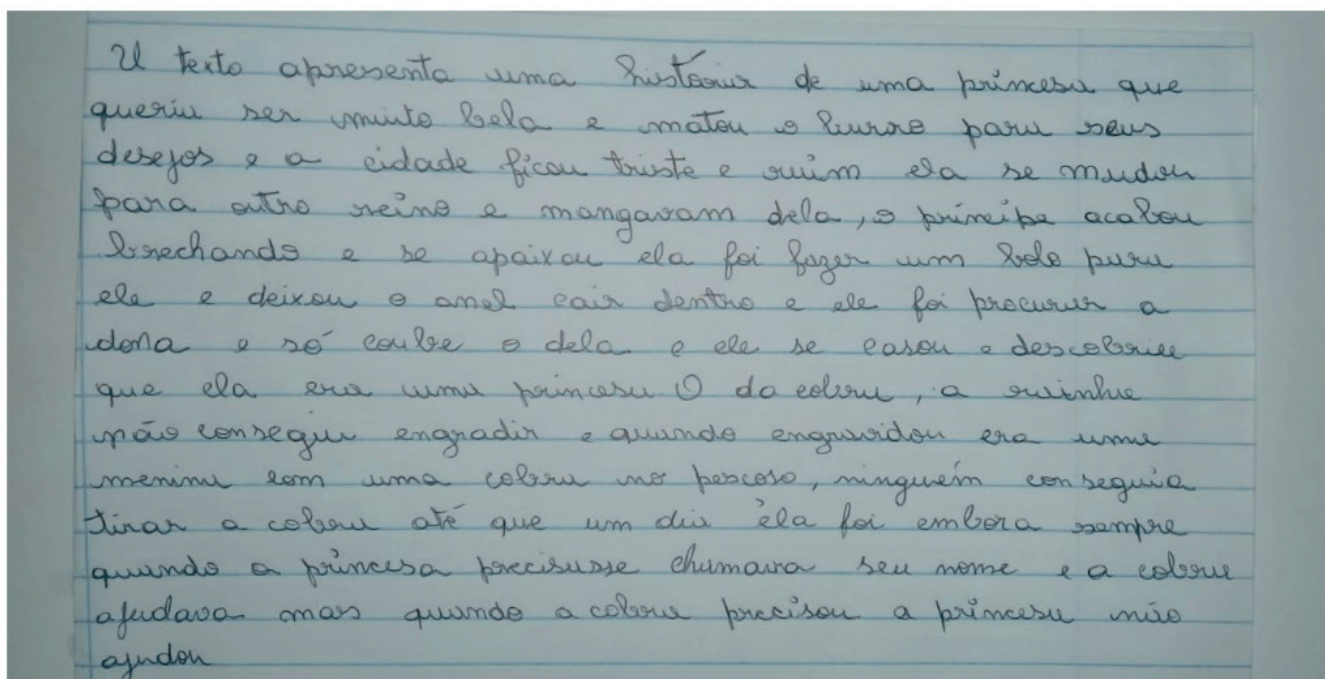 O texto apresenta uma história de uma princesa que
queria ser muito bela e matou o burro para seus
desejos e a cidade ficou triste e ruim ela se mudou
para outro reino e mangavam dela, o príncipe acabou
brechando e se apaixou ela foi fazer um bolo para
ele e deixou o anel cair dentro e ele foi procurar a
dona e só coube o dela e ele se casou e descobriu
que ela era uma princesa O da cobra, a rainha
não consegui engradir e quando engravidou era uma
menina com uma cobra no pescoso, ninguém conseguia
tirar a cobra até que um dia ela foi embora sempre
quando a princesa precisasse chamava seu nome e a cobra
ajudava mas quando a cobra precisou a princesa não
ajudou